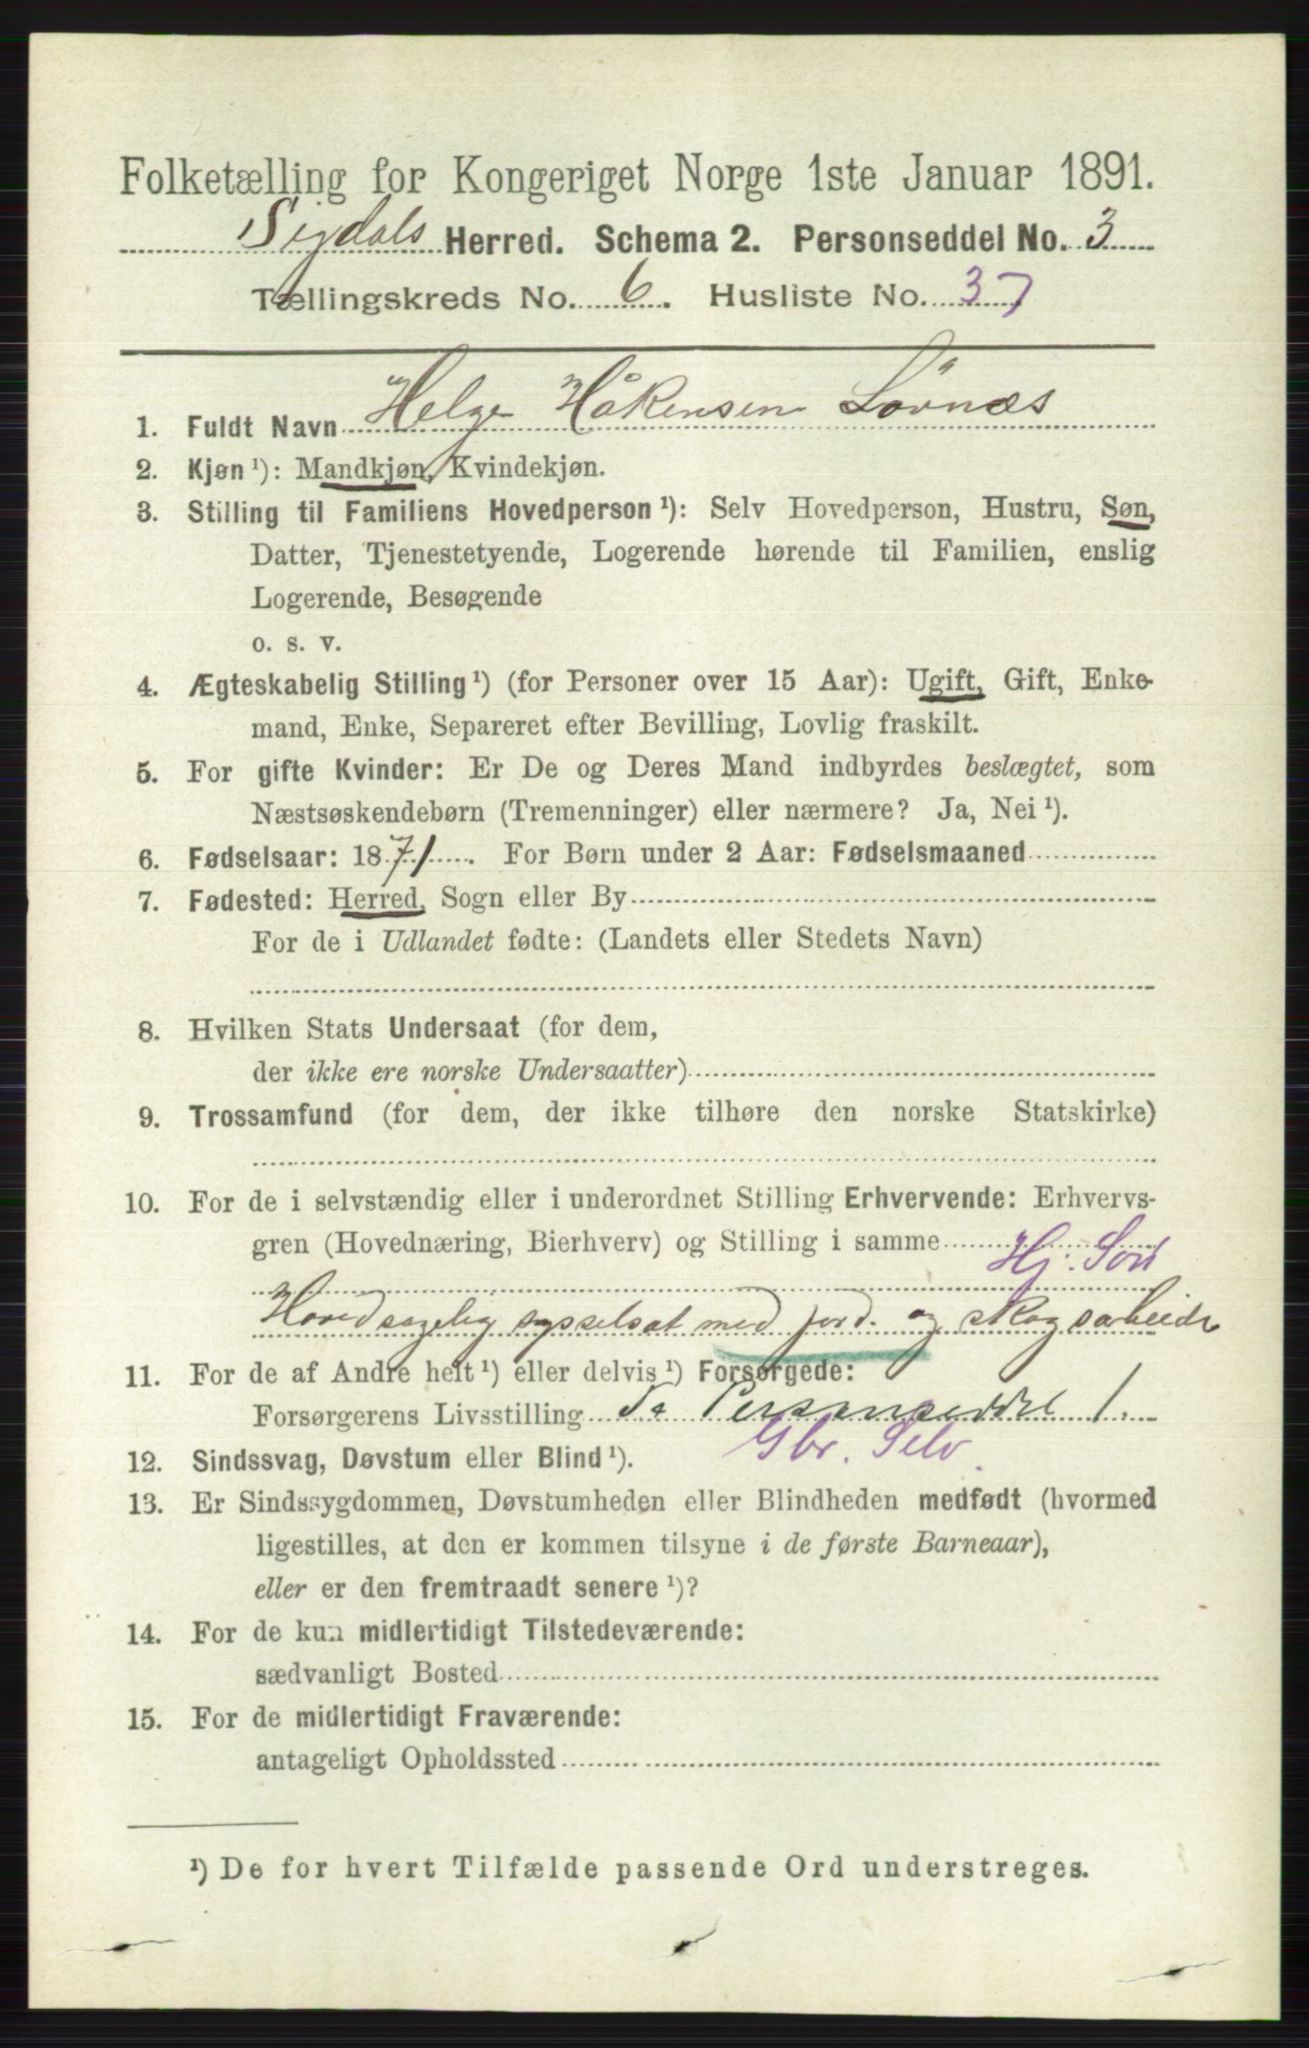 Folketælling for Kongeriget Norge 1ste Januar 1891.
Sigdals Herred. Schema 2. Personseddel No. 3
Tællingskreds No. 6. Husliste No. 37
1. Fuldt Navn Helge Håkensen Lövnæs
2. Kjøn ¹): Mandkjøn, Kvindekjøn.
3. Stilling til Familiens Hovedperson ¹): Selv Hovedperson, Hustru, Søn,
Datter, Tjenestetyende, Logerende hørende til Familien, enslig
Logerende, Besøgende
o. s. v.
4. Ægteskabelig Stilling ¹) (for Personer over 15 Aar): Ugift, Gift, Enke-
mand, Enke, Separeret efter Bevilling, Lovlig fraskilt.
5. For gifte Kvinder: Er De og Deres Mand indbyrdes beslægtet, som
Næstsøskendebørn (Tremenninger) eller nærmere? Ja, Nei ¹).
6. Fødselsaar: 1871. For Børn under 2 Aar: Fødselsmaaned
7. Fødested: Herred, Sogn eller By
For de i Udlandet fødte: (Landets eller Stedets Navn)
8. Hvilken Stats Undersaat (for dem,
der ikke ere norske Undersaatter)
9. Trossamfund (for dem, der ikke tilhøre den norske Statskirke)
10. For de i selvstændig eller i underordnet Stilling Erhvervende: Erhvervs-
gren (Hovednæring, Bierhverv) og Stilling i samme Hj. Søn
Hovedsagelig sysselsat med jord- og skogsarbeide
11. For de af Andre helt ¹) eller delvis ¹) Forsørgede:
Forsørgerens Livsstilling Se Personseddel 1.
Gbr. Selv
12. Sindssvag, Døvstum eller Blind ¹).
13. Er Sindssygdommen, Døvstumheden eller Blindheden medfødt (hvormed
ligestilles, at den er kommen tilsyne i de første Barneaar),
eller er den fremtraadt senere ¹)?
14. For de kun midlertidigt Tilstedeværende:
sædvanligt Bosted
15. For de midlertidigt Fraværende:
antageligt Opholdssted
¹) De for hvert Tilfælde passende Ord understreges.